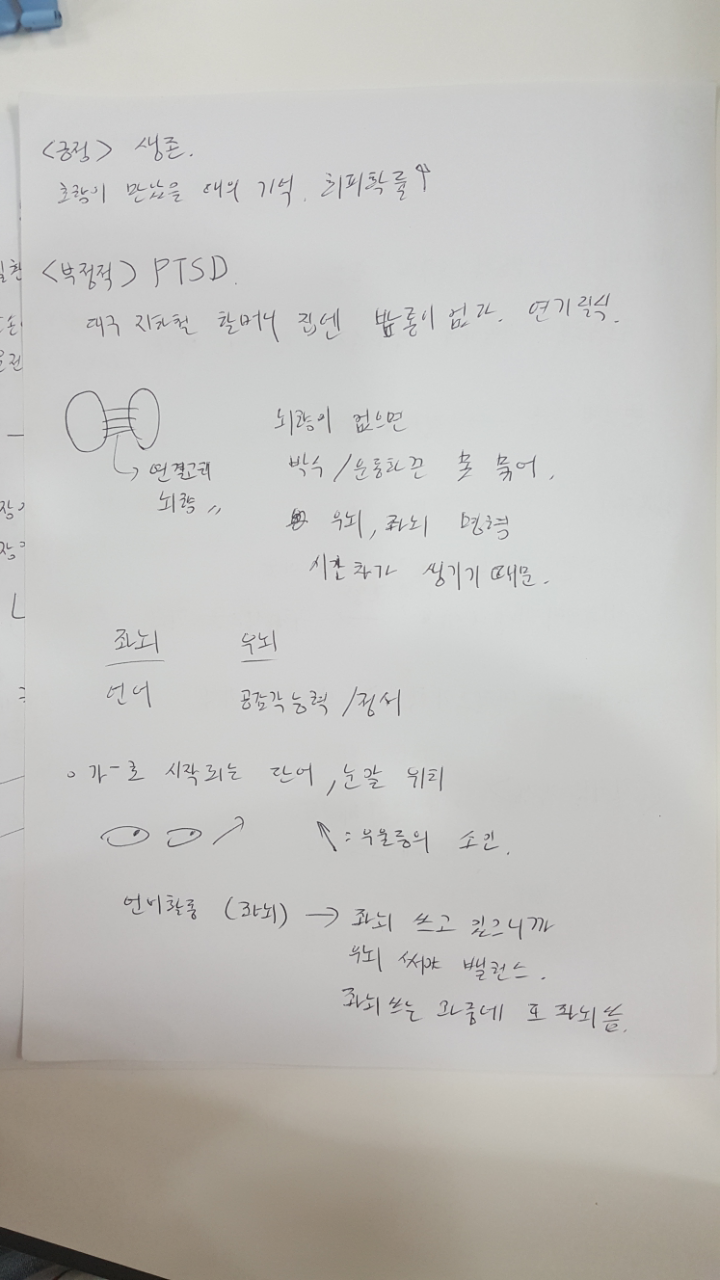 <긍정> 생존.
호랑이 만났을 때의 기억. 회피확률↑
<부정적> PTSD.
대구 지하철 할머니 집엔 밥통이 없다. 연기 질식.
뇌량이 없으면
→ 연결고리
박수/운동화끈 못 묶어.
뇌량 〃
우뇌, 좌뇌 명령
시간차가 생기기 때문.
좌뇌 우뇌
언어 공감각능력/정서
○ 가-로 시작되는 단어, 눈깔 위치
: 우울증의 소인.
언어활동 (좌뇌) → 좌뇌 쓰고 있으니까
우뇌 써야 밸런스.
좌뇌쓰는 와중에 또 좌뇌씀.